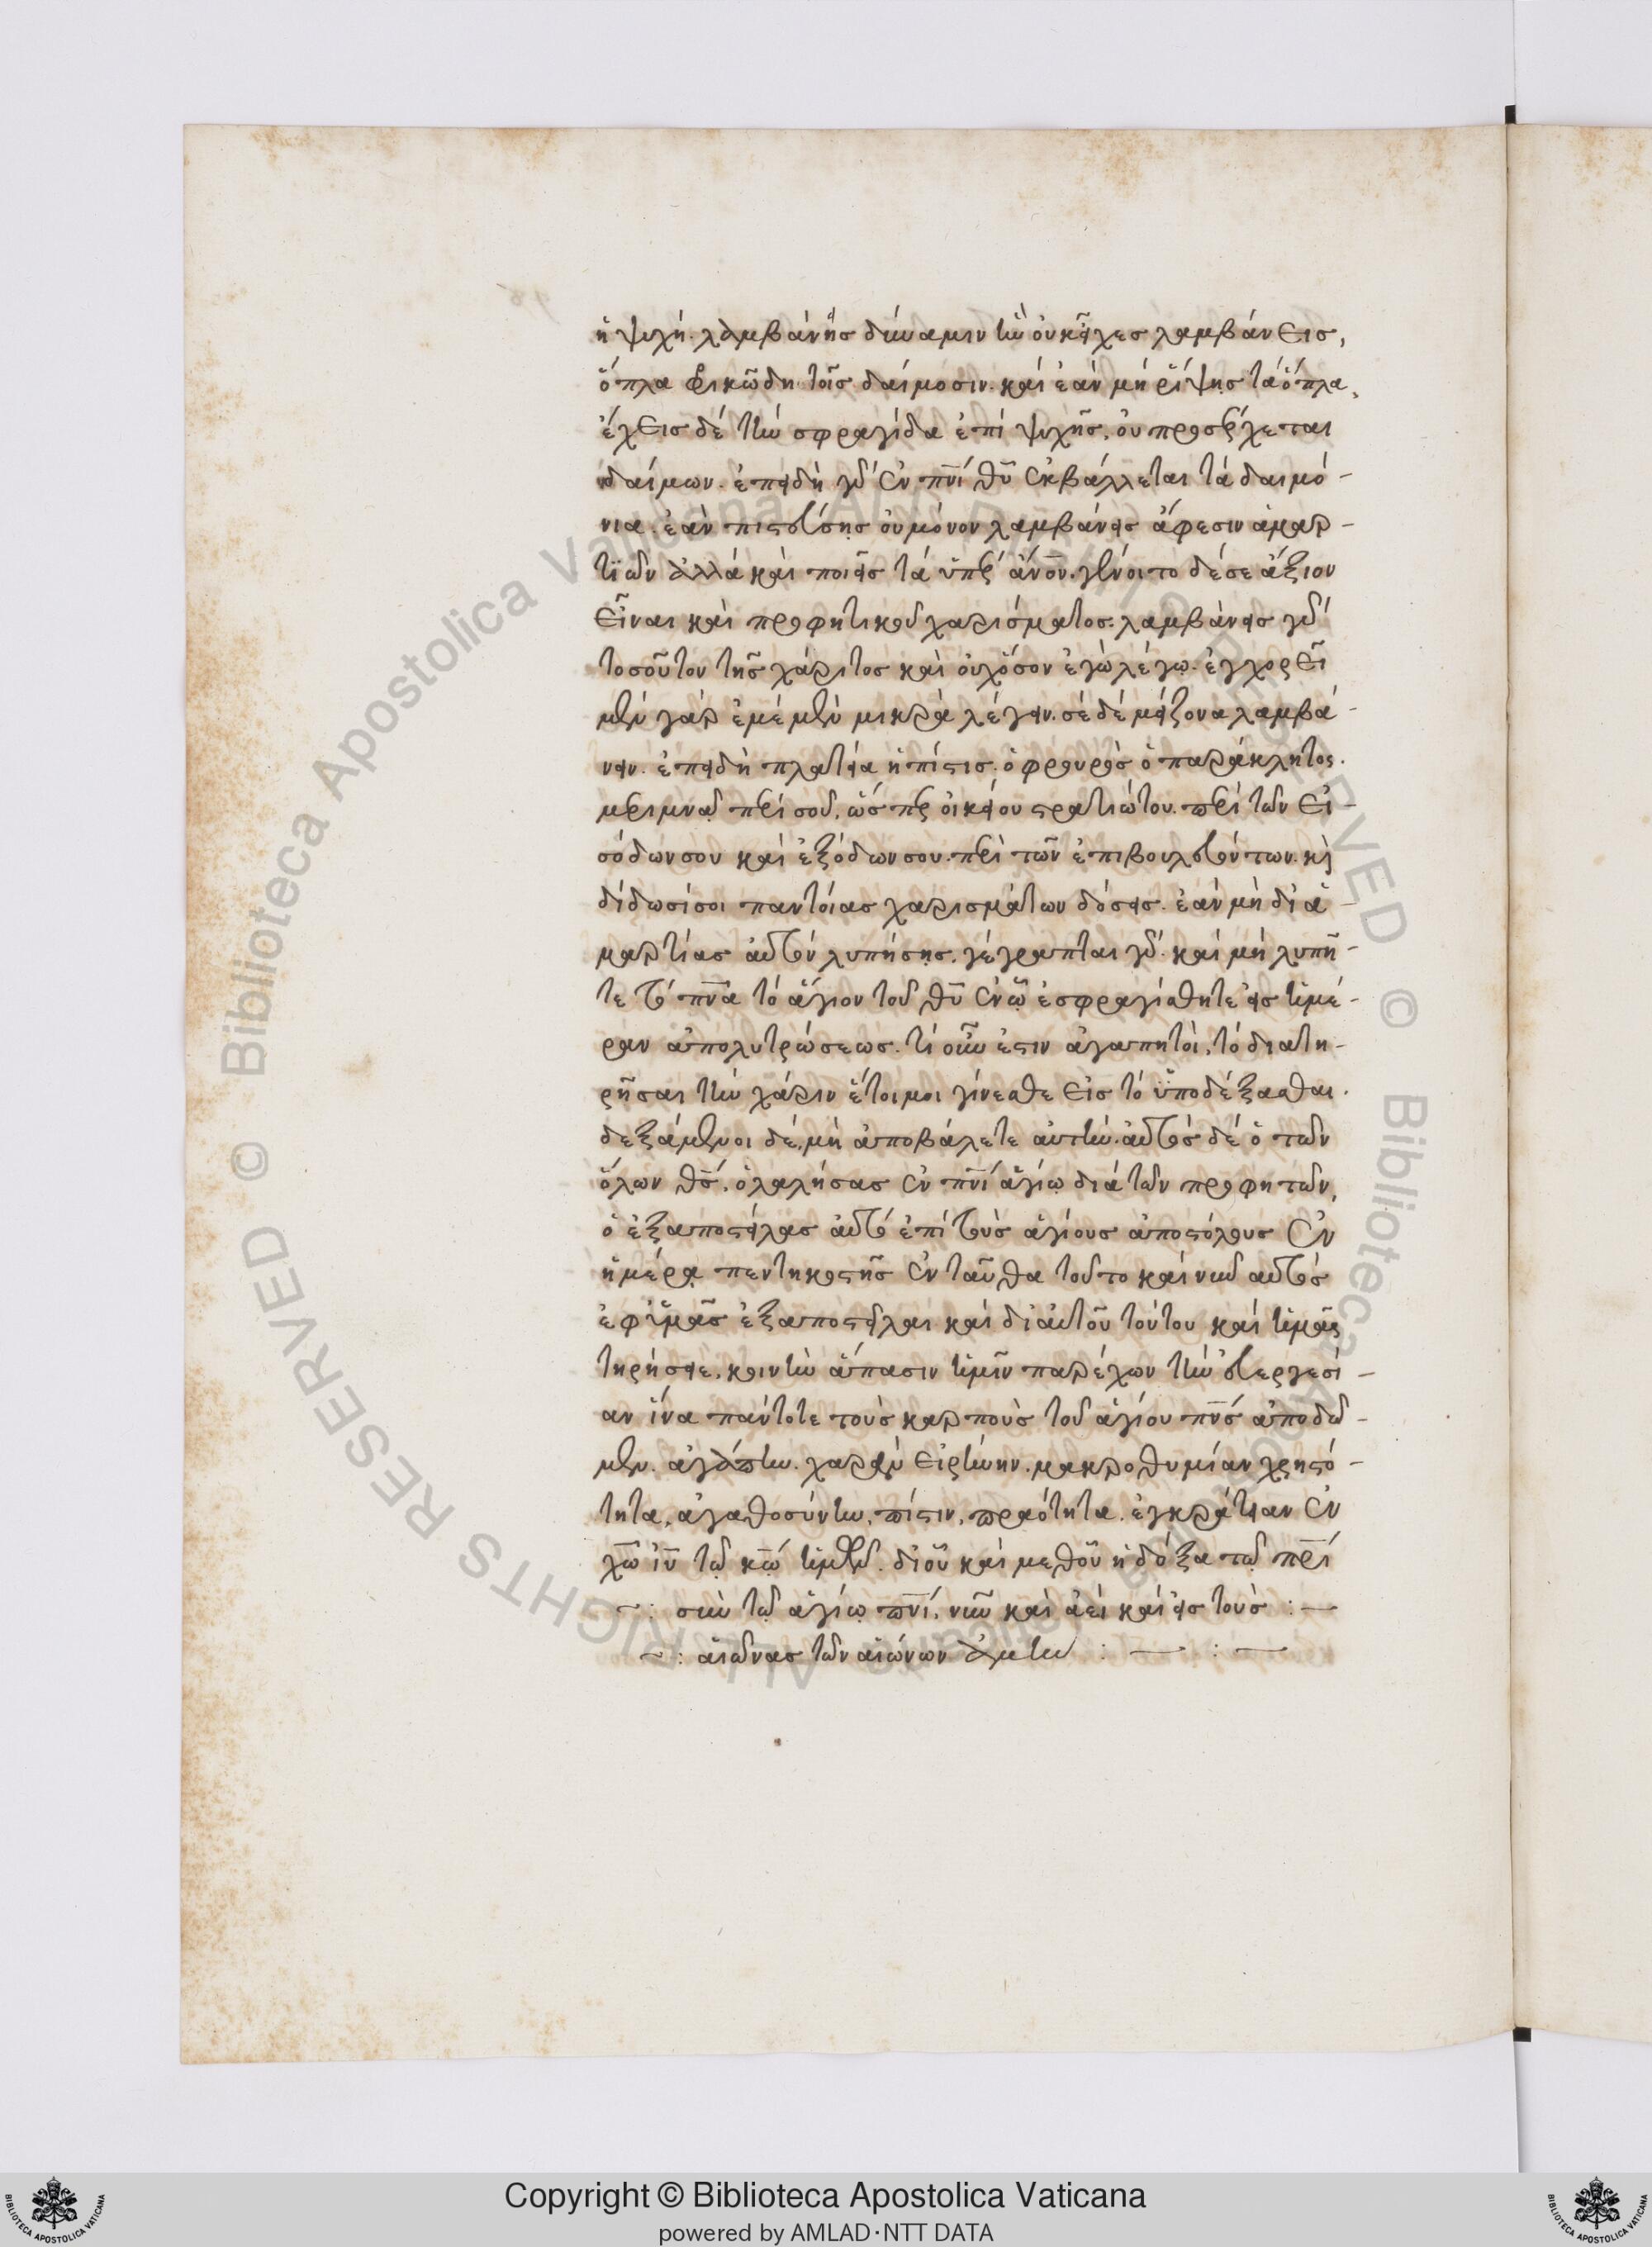 ἡ ψυχὴ. λαμβάνης δύναμιν ἣν οὐκ εἶχες λαμβάνεις,
ὅπλα φρικώδη τοῖς δαίμοσιν. καὶ ἐὰν μὴ ῥίψῃς τὰ ὅπλα,
ἔχεις δὲ τὴν σφραγίδα ἐπὶ ψυχῆς, οὐ προσέρχεται
ὁ δαίμων. ἐπειδὴ γὰρ ἐν πνὶ θῦ ἐκβάλλεται τὰ δαιμό-
νια. ἐὰν πιστεύσης οὐ μόνον λαμβάνεις ἄφεσιν ἁμαρ-
τιῶν ἀλλὰ καὶ ποιεῖς τὰ ὑπὲρ ἄνον. γένοιτο δέ σε ἄξιον
εἶναι καὶ προφητικοῦ χαρίσματος. λαμβάνεις γὰρ
τοσοῦτον τῆς χάριτος καὶ οὐχ ὅσον ἐγὼ λέγω. ἐγχορεῖ
μὲν γὰρ ἐμὲ μὲν μικρὰ λέγειν. σὲ δὲ μείζονα λαμβά-
νειν. ἐπειδὴ πλατεῖα ἡ πίστις. ὁ φρουρὸς ὁ παράκλητος.
μεριμνᾷ περὶ σοῦ, ὥσπερ οἰκείου στρατιώτου. περὶ τῶν εἰ-
σόδων σου καὶ ἐξόδων σου. περὶ τῶν ἐπιβουλευόντων. καὶ
δίδωσί σοι παντοίας χαρισμάτων δόσεις. ἐὰν μὴ δι ἁ-
μαρτίας αὐτὸν λυπήσης. γέγραπται γὰρ. καὶ μὴ λυπῆ-
τε τὸ πνα τὸ ἅγιον τοῦ θῦ ἐν ᾧ ἐσφραγίσθητε εἰς ἡμέ-
ραν ἀπολυτρώσεως. τί οὖν ἐστιν ἀγαπητοὶ, τὸ διατη-
ρῆσαι τὴν χάριν ἕτοιμοι γίνεσθε εἰς τὸ ὑποδέξασθαι.
δεξάμενοι δὲ, μὴ ἀποβάλετε αὐτὴν. αὐτὸς δὲ ὁ τῶν
ὅλων θς, ὁ λαλήσας ἐν πνὶ ἁγίῳ διὰ τῶν προφητῶν,
ὁ ἐξαποστείλας αὐτὸ ἐπὶ τοὺς ἁγίους ἀποστόλους ἐν
ἡμέρᾳ πεντηκοστῆς ἐνταῦθα τοῦτο καὶ νῦν αὐτὸς
ἐφ ἡμᾶς ἐξαποστεῖλαι καὶ δι αὐτοῦ τούτου καὶ ἡμᾶς
τηρήσειε, κοινὴν ἅπασιν ἡμῖν παρέχων τὴν εὐεργεσί-
αν ἵνα πάντοτε τοὺς καρποὺς τοῦ ἁγίου πνς ἀποδῶ-
μεν. ἀγάπην. χαρὰν εἰρήνην. μακροθυμίαν χρηστό-
τητα, ἀγαθοσύνην, πίστιν, πραότητα. ἐγκράτειαν ἐν
χῶ ἰῦ τῷ κῷ ἡμῶν. δι οὗ καὶ μεθ οὗ ἡ δόξα τῷ πρὶ
~: σὺν τῷ ἁγίῳ πνὶ, νῦν καὶ ἀεὶ καὶ εἰς τοὺς :—
~: αἰῶνας τῶν αἰώνων ἀμὴν : — : —
© Biblioteca Apostolica Vaticana ALL RIGHTS RESERVED © Biblioteca Apostolica Vaticana ALL RIGHTS RESERVED
Copyright © Biblioteca Apostolica Vaticana
powered by AMLAD·NTT DATA